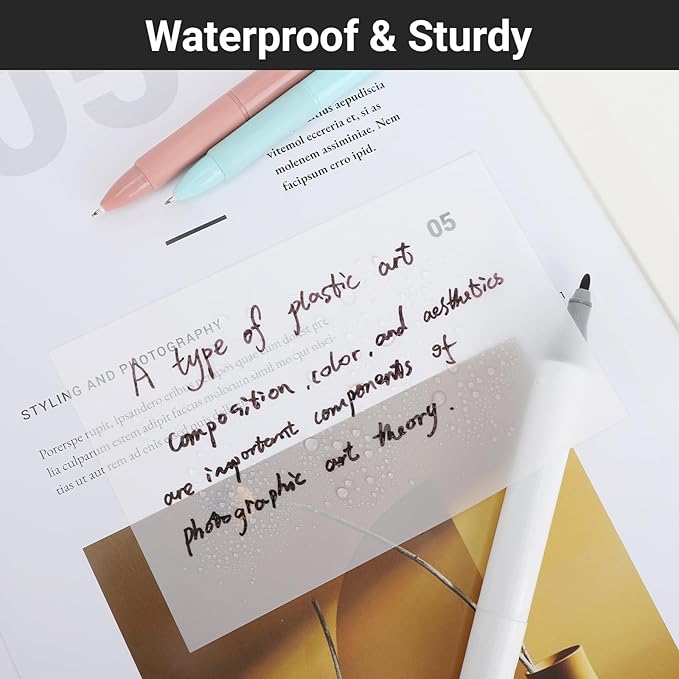 Waterproof & Sturdy
05
aepudiscia
vitemol ecereria et, si as
molenem assiminiae. Nem
facipsum erro ipid.
05
A type of plastic art
composition, color, and aesthetics
are important components of
photographic art theory.
STYLING AND PHOTOGRAPHY
Porerspe rupit, ipsandero
lia culparum estem adipit faccus molorum simil mo cur
tias ut aut rem ad enis